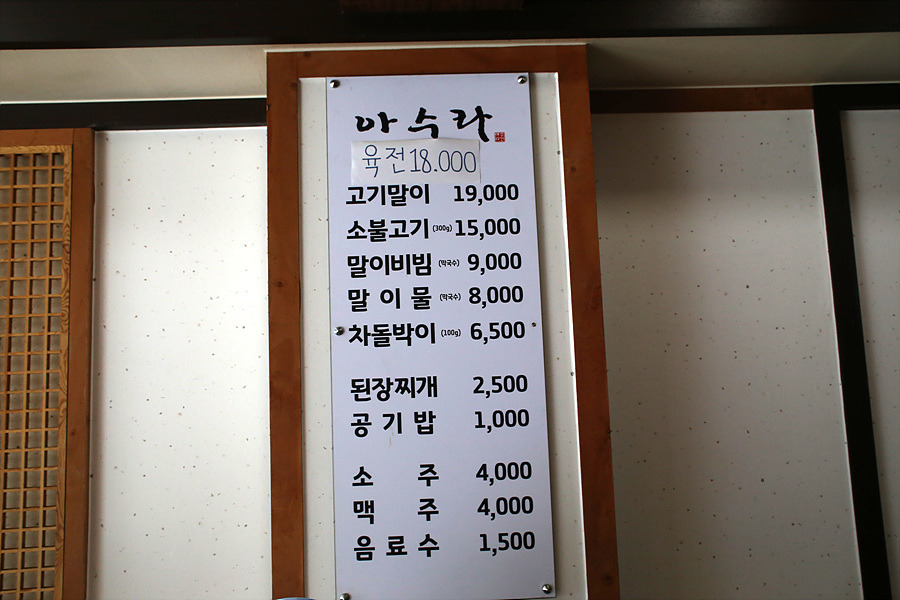 아수라
육전 18.000
고기말이 19,000
소불고기 (300g) 15,000
말이비빔 (막국수) 9,000
말이물 (막국수) 8,000
차돌박이 (100g) 6,500
된장찌개 2,500
공기밥 1,000
소주 4,000
맥주 4,000
음료수 1,500